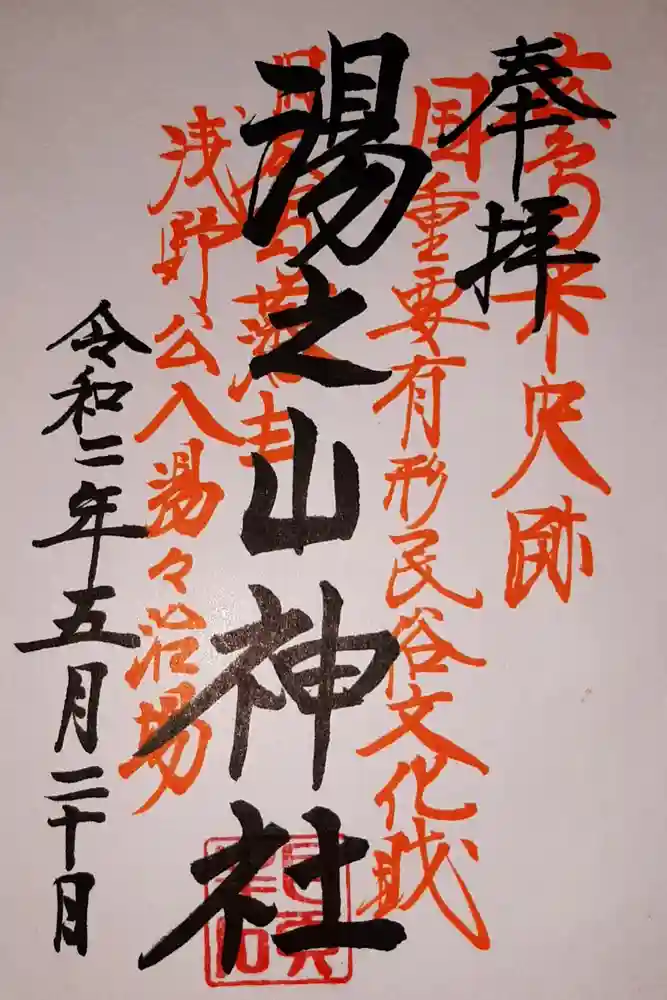 奉拝
広島県史跡
国重要有形民俗文化財
湯之山神社
藩主
浅野公入湯々治場
令和二年五月二十日